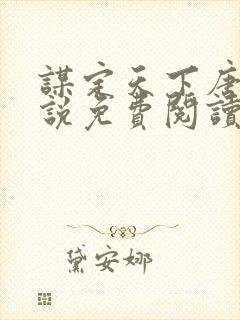 謀定天下唐
說免費閱讀
黛安娜